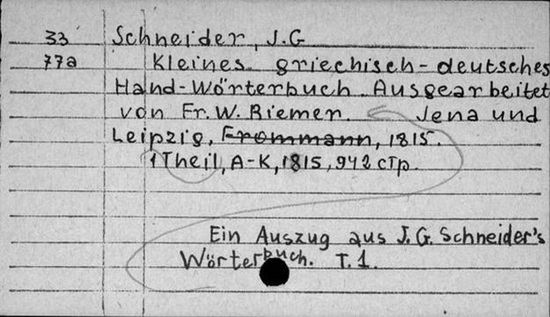 33 Schneider, J.G
77a Kleines griechisch-deutsches
Hand-Wörterbuch Ausgearbeitet
von Fr. W. Riemer. Jena und
Leipzig, Frommann, 1815.
1 Theil, A-K, 1815, 942 стр.
Ein Auszug aus J.G. Schneider's
Wörterbuch. T.1.